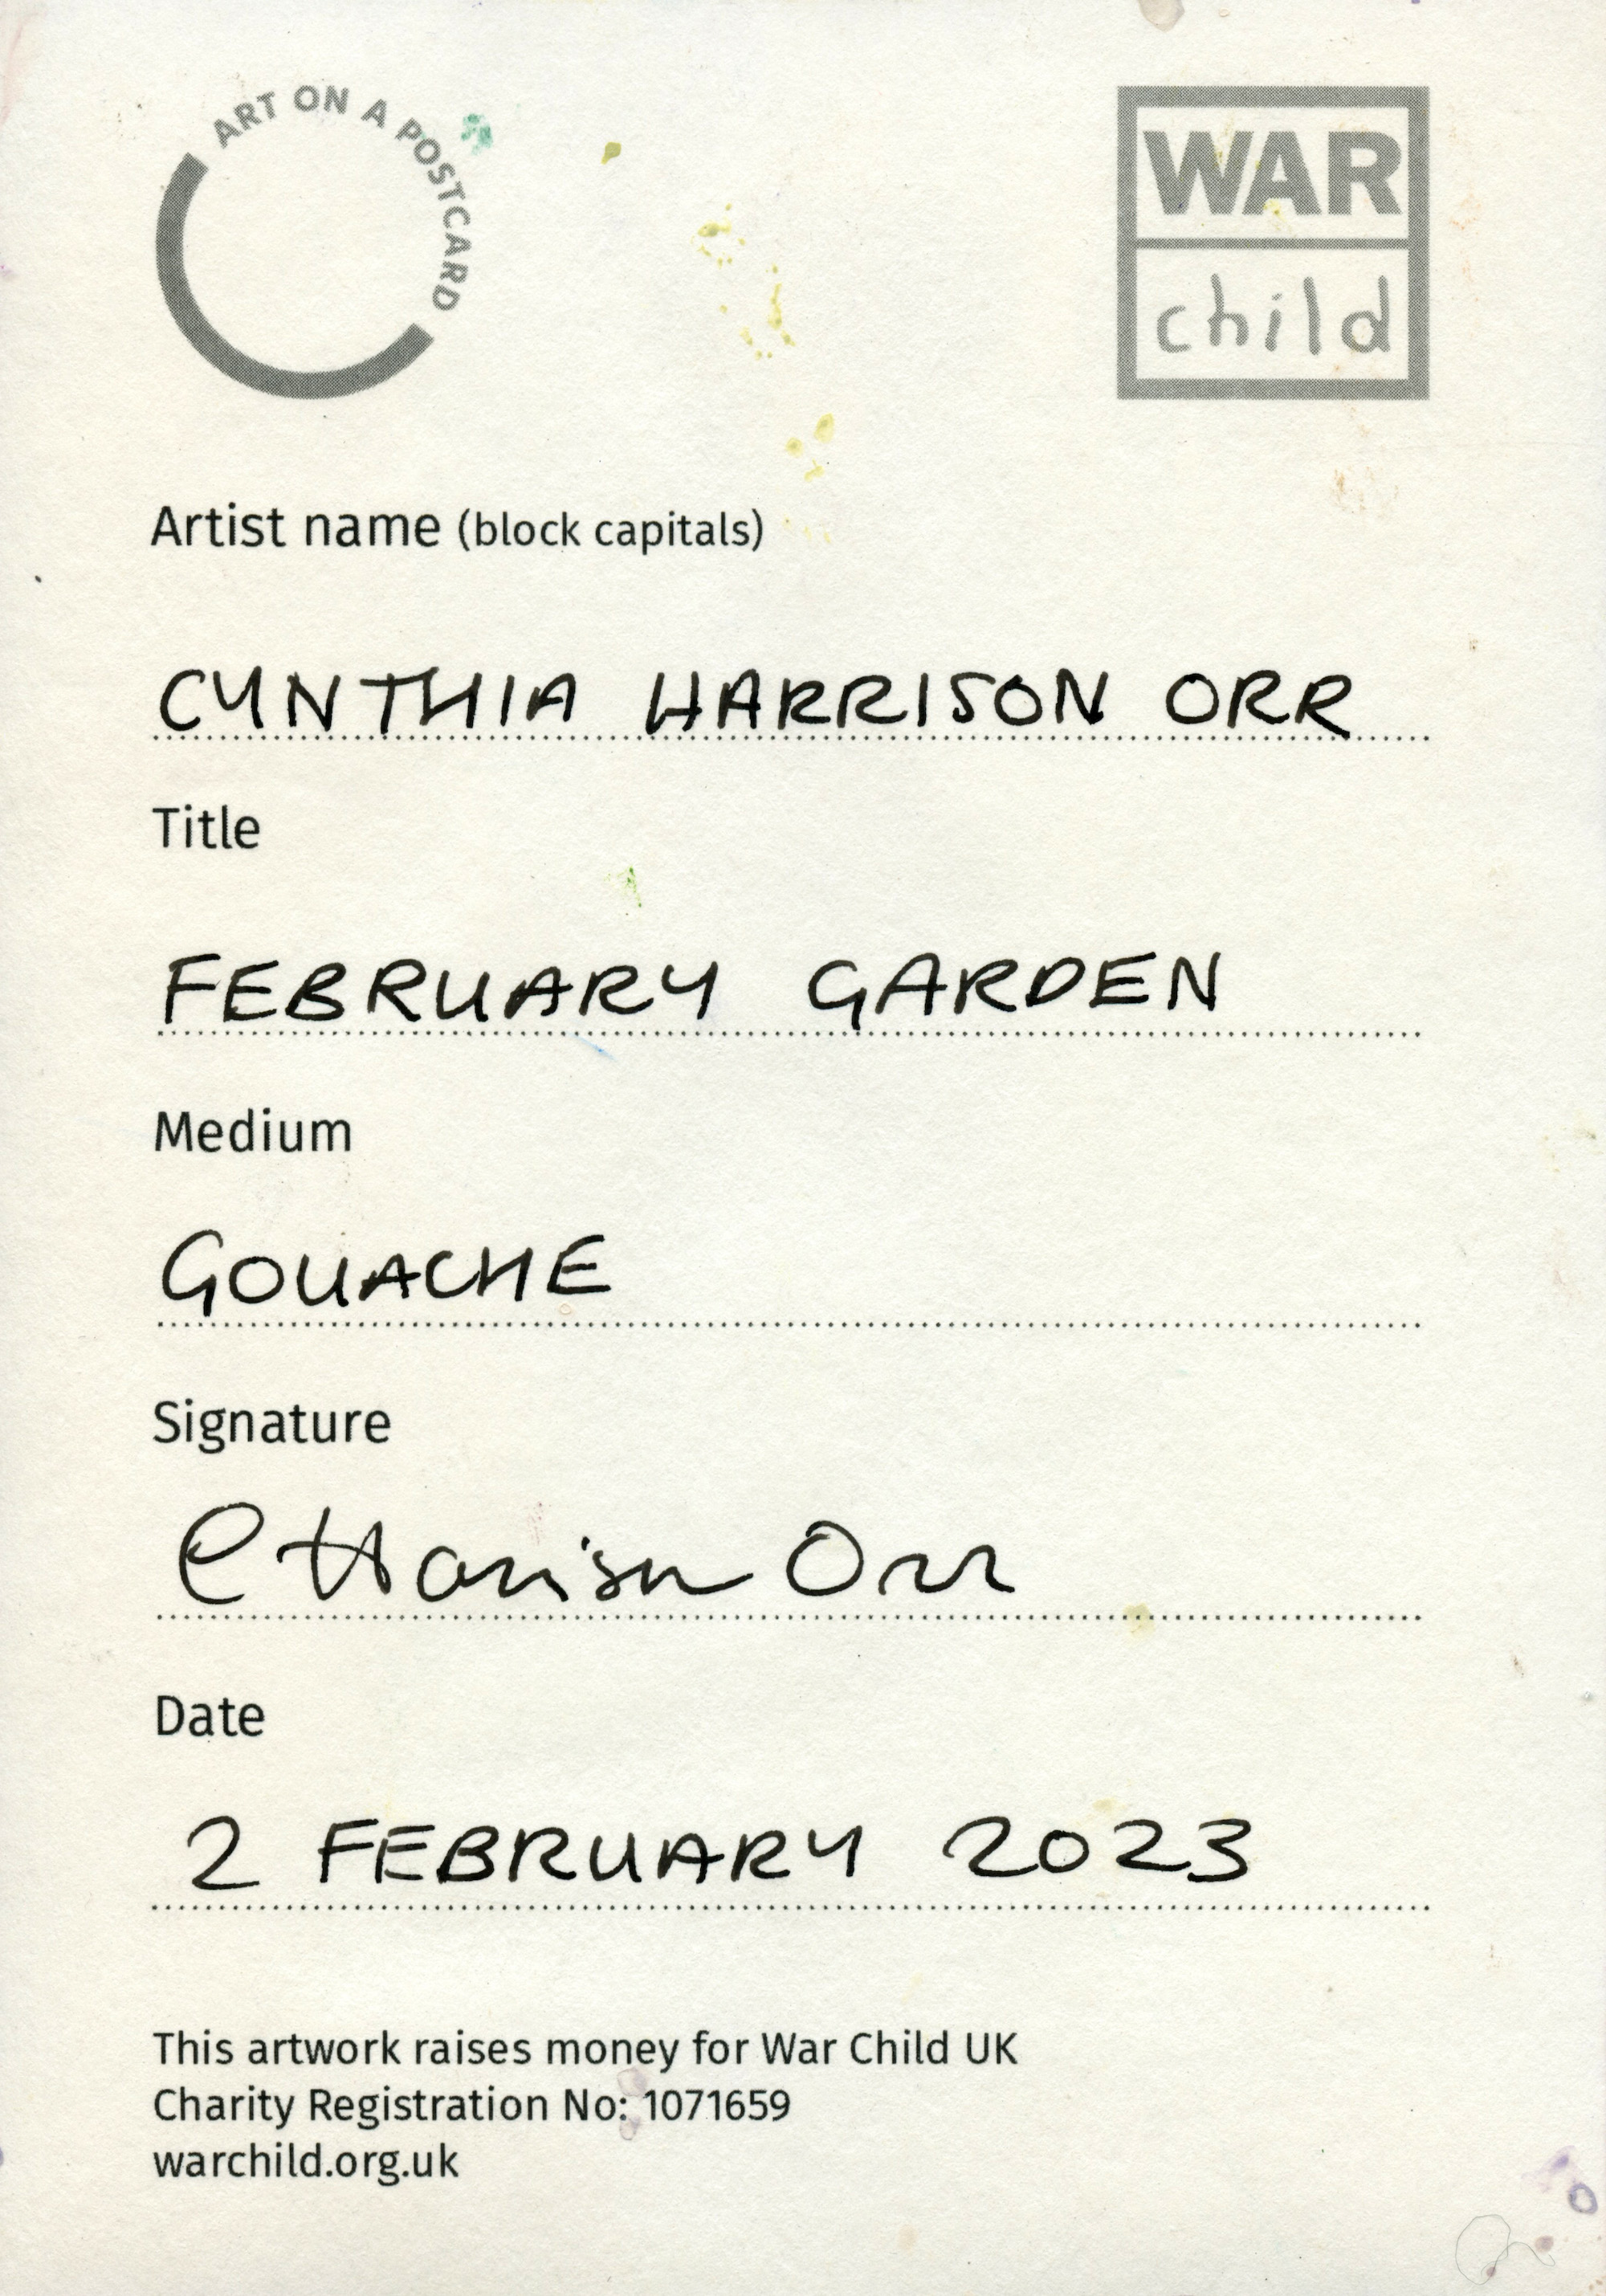 ART ON A POSTCARD
WAR
child
Artist name (block capitals)
CYNTHIA HARRISON ORR
Title
FEBRUARY GARDEN
Medium
GOUACHE
Signature
C Harrison Orr
Date
2 FEBRUARY 2023
This artwork raises money for War Child UK
Charity Registration No: 1071659
warchild.org.uk